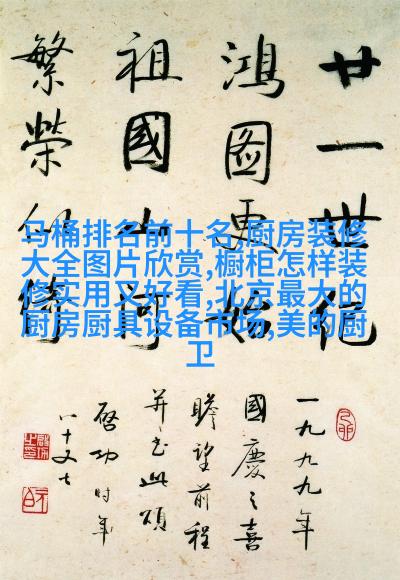 廿一世纪
鸿图更始
祖國山河
繁榮似
一九九九年
國慶之喜
瞻望前程
并书此頌
啓功时年
八十又七
马桶排名前十名,厨房装修
大全图片欣赏,橱柜怎样装
修实用又好看,北京最大的
厨房厨具设备市场,美的厨
卫